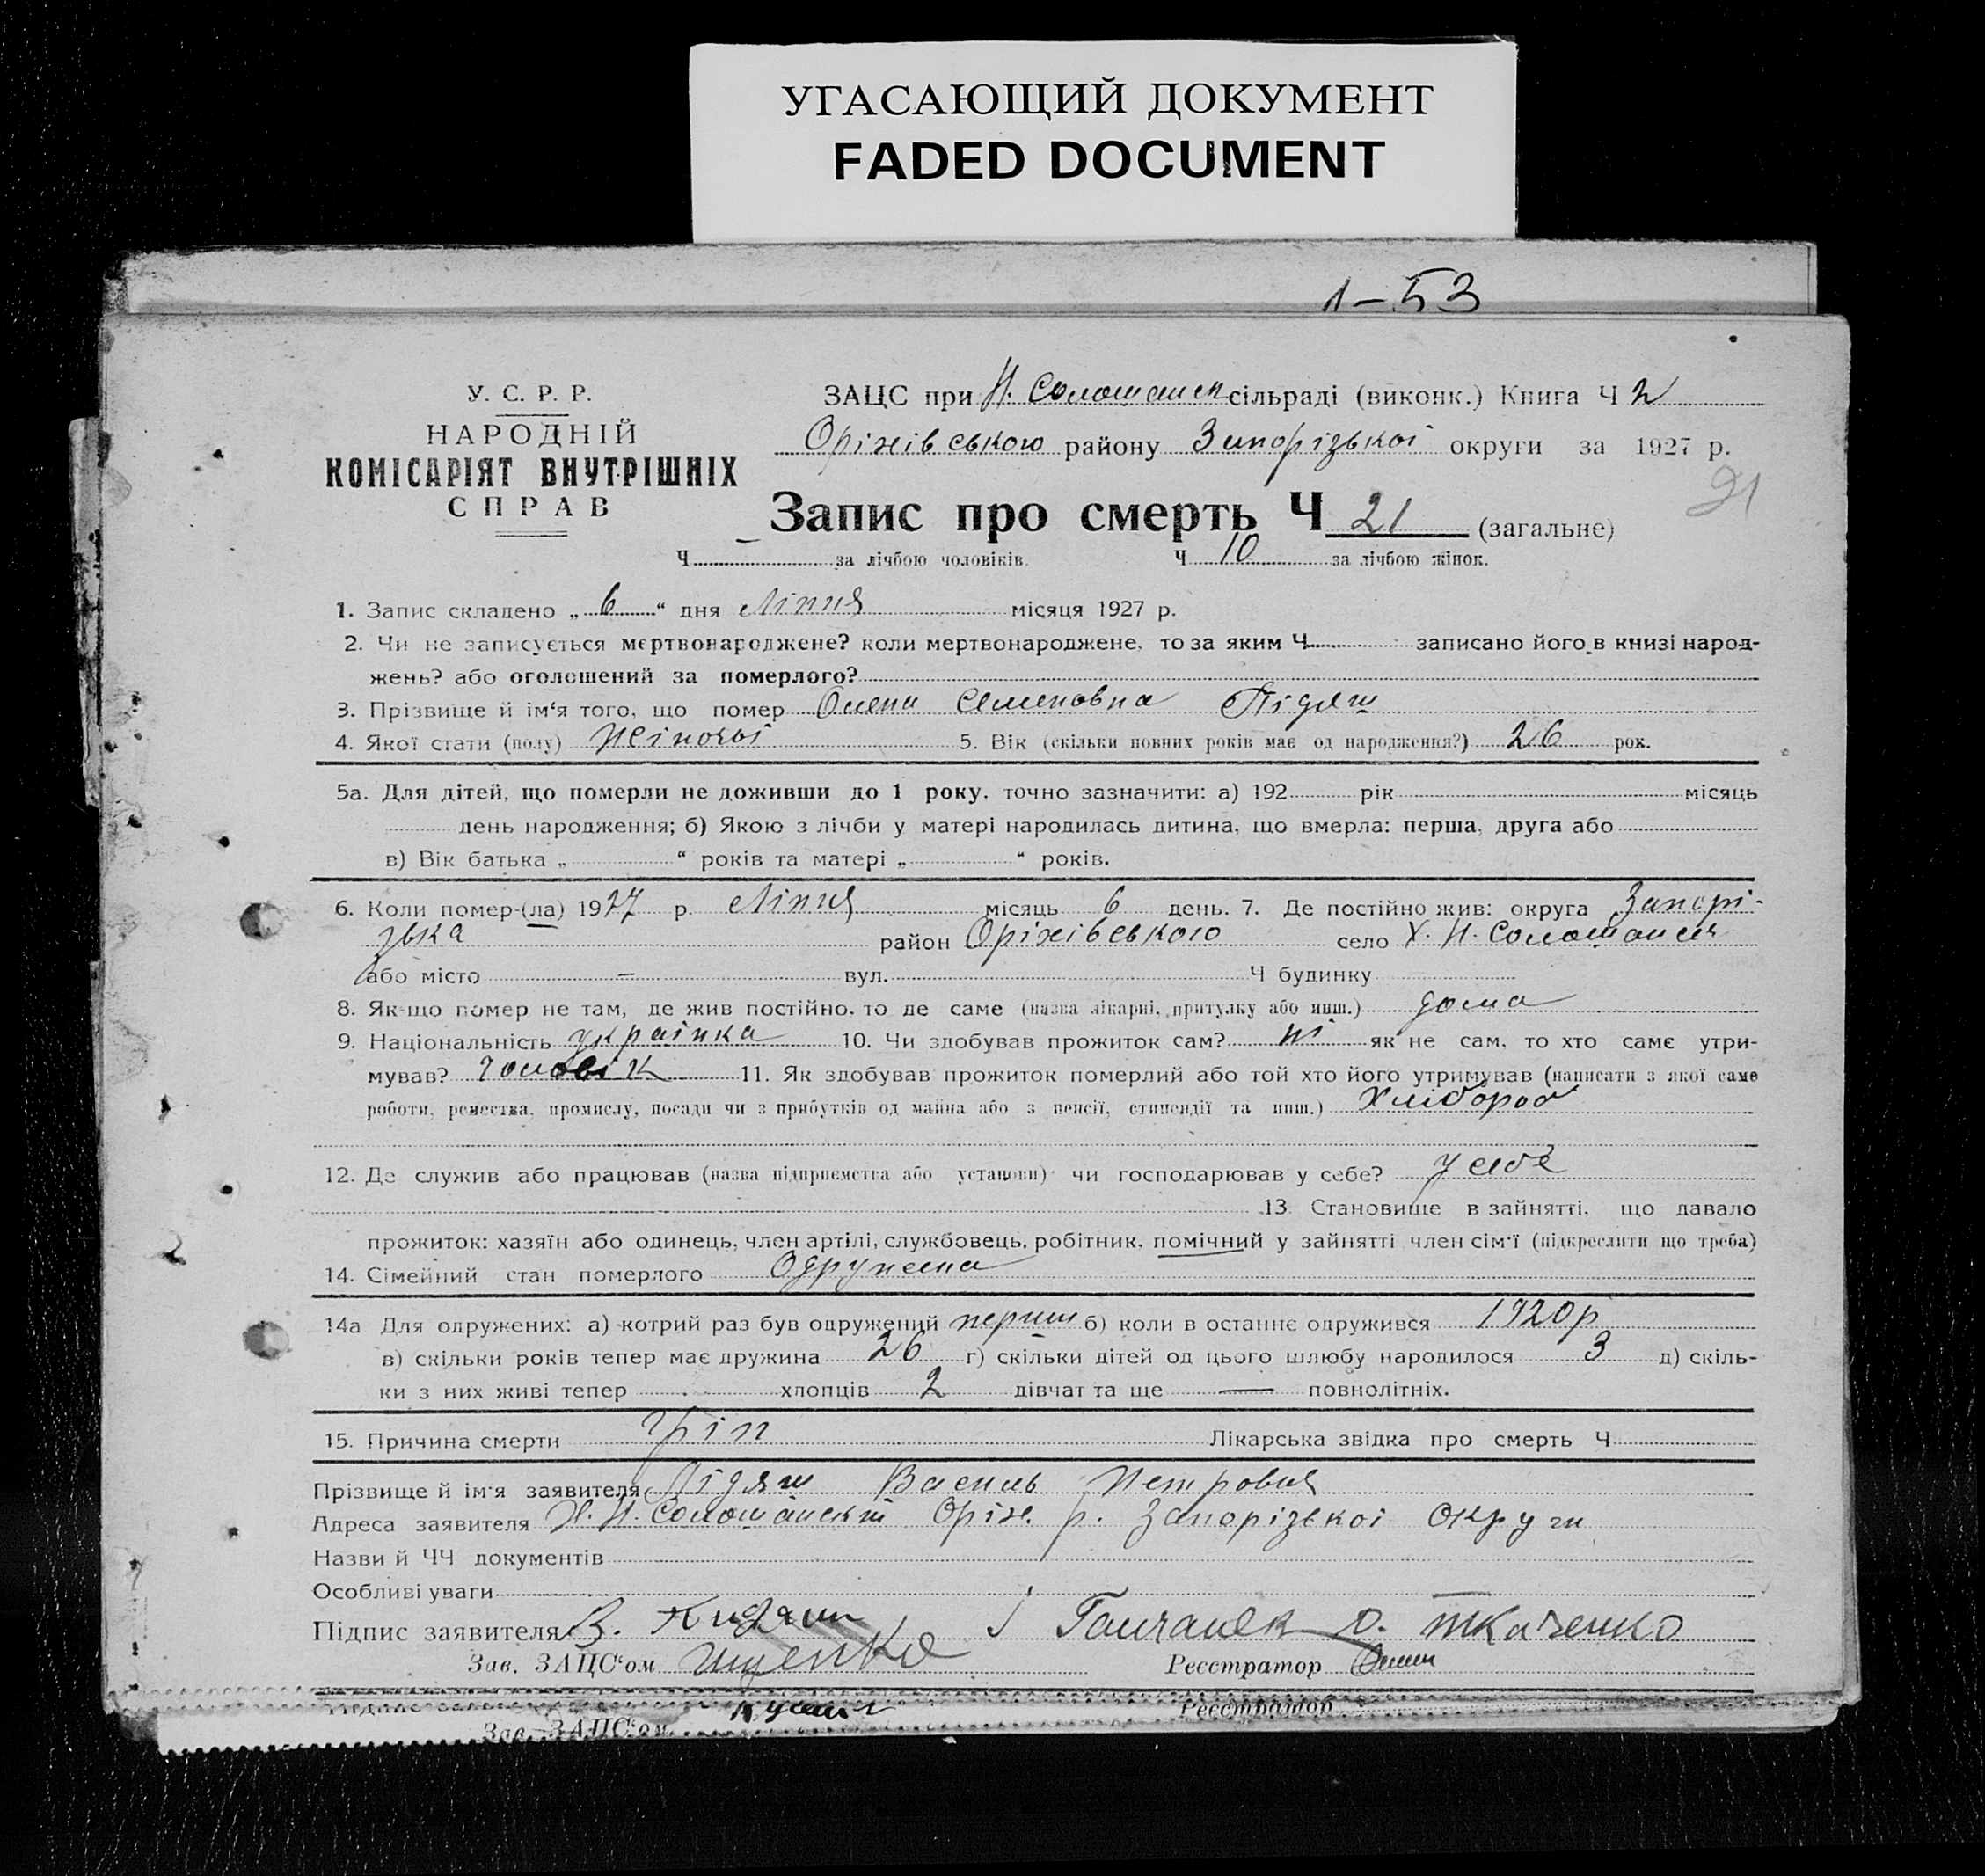 УГАСАЮЩИЙ ДОКУМЕНТ
FADED DOCUMENT
1-53
У. С. Р. Р.
НАРОДНІЙ
КОМІСАРІЯТ ВНУТРІШНІХ
СПРАВ
ЗАЦС при Н. Солошанск сільраді (виконк.) Книга Ч 2
Оріхівського району Запорізької округи за 1927 р.
21
Запис про смерть Ч 21 (загальне)
Ч – за лічбою чоловіків. Ч 10 за лічбою жінок.
1. Запис складено „ 6 “ дня Ліпця місяця 1927 р.
2. Чи не записується мертвонароджене? коли мертвонароджене, то за яким Ч записано його в книзі народ-
жень? або оголошений за померлого?
3. Прізвище й ім‘я того, що помер Олена Семеновна Підяш
4. Якої стати (полу) Жіночої 5. Вік (скільки повних років має од народження?) 26 рок.
5а. Для дітей, що померли не доживши до 1 року, точно зазначити: а) 192 рік місяць
день народження; б) Якою з лічби у матері народилась дитина, що вмерла: перша, друга або
в) Вік батька „ “ років та матері „ “ років.
6. Коли помер-(ла) 1927 р. Ліпця місяць 6 день. 7. Де постійно жив: округа Запорі-
зька район Оріхівського село Х. Н. Солошанск
або місто – вул. Ч будинку
8. Як-що помер не там, де жив постійно, то де саме (назва лікарні, притулку або инш.) дома
9. Національність українка 10. Чи здобував прожиток сам? ні як не сам, то хто саме утри-
мував? Чоловік 11. Як здобував прожиток померлий або той хто його утримував (написати з якої саме
роботи, ремества, промислу, посади чи з прибутків од майна або з пенсії, стипендії та инш.) Хлібороб
12. Де служив або працював (назва підприємства або установи) чи господарював у себе? у себе
13. Становище в зайнятті, що давало
прожиток: хазяїн або одинець, член артілі, службовець, робітник, помічний у зайнятті член сім‘ї (підкреслити що треба)
14. Сімейний стан померлого Одружена
14а Для одружених: а) котрий раз був одружений перший б) коли в останнє одружився 1920 р
в) скільки років тепер має дружина 26 г) скільки дітей од цього шлюбу народилося 3 д) скіль-
ки з них живі тепер хлопців 2 дівчат та ще — повнолітніх.
15. Причина смерти Гріп Лікарська звідка про смерть Ч
Прізвище й ім‘я заявителя Підяш Василь Петрович
Адреса заявителя Х. Н. Солошанский Оріх. р. Запорізької Округи
Назви й ЧЧ документів
Особливі уваги
Підпис заявителя В. і О. Ткаченко
Зав. ЗАЦС‘ом Ищенко Реєстратор
Реєстратор
Зав. ЗАЦС‘ом